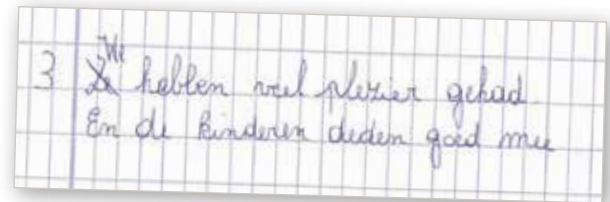 3 We hebben veel plezier gehad
En de kinderen deden goed mee